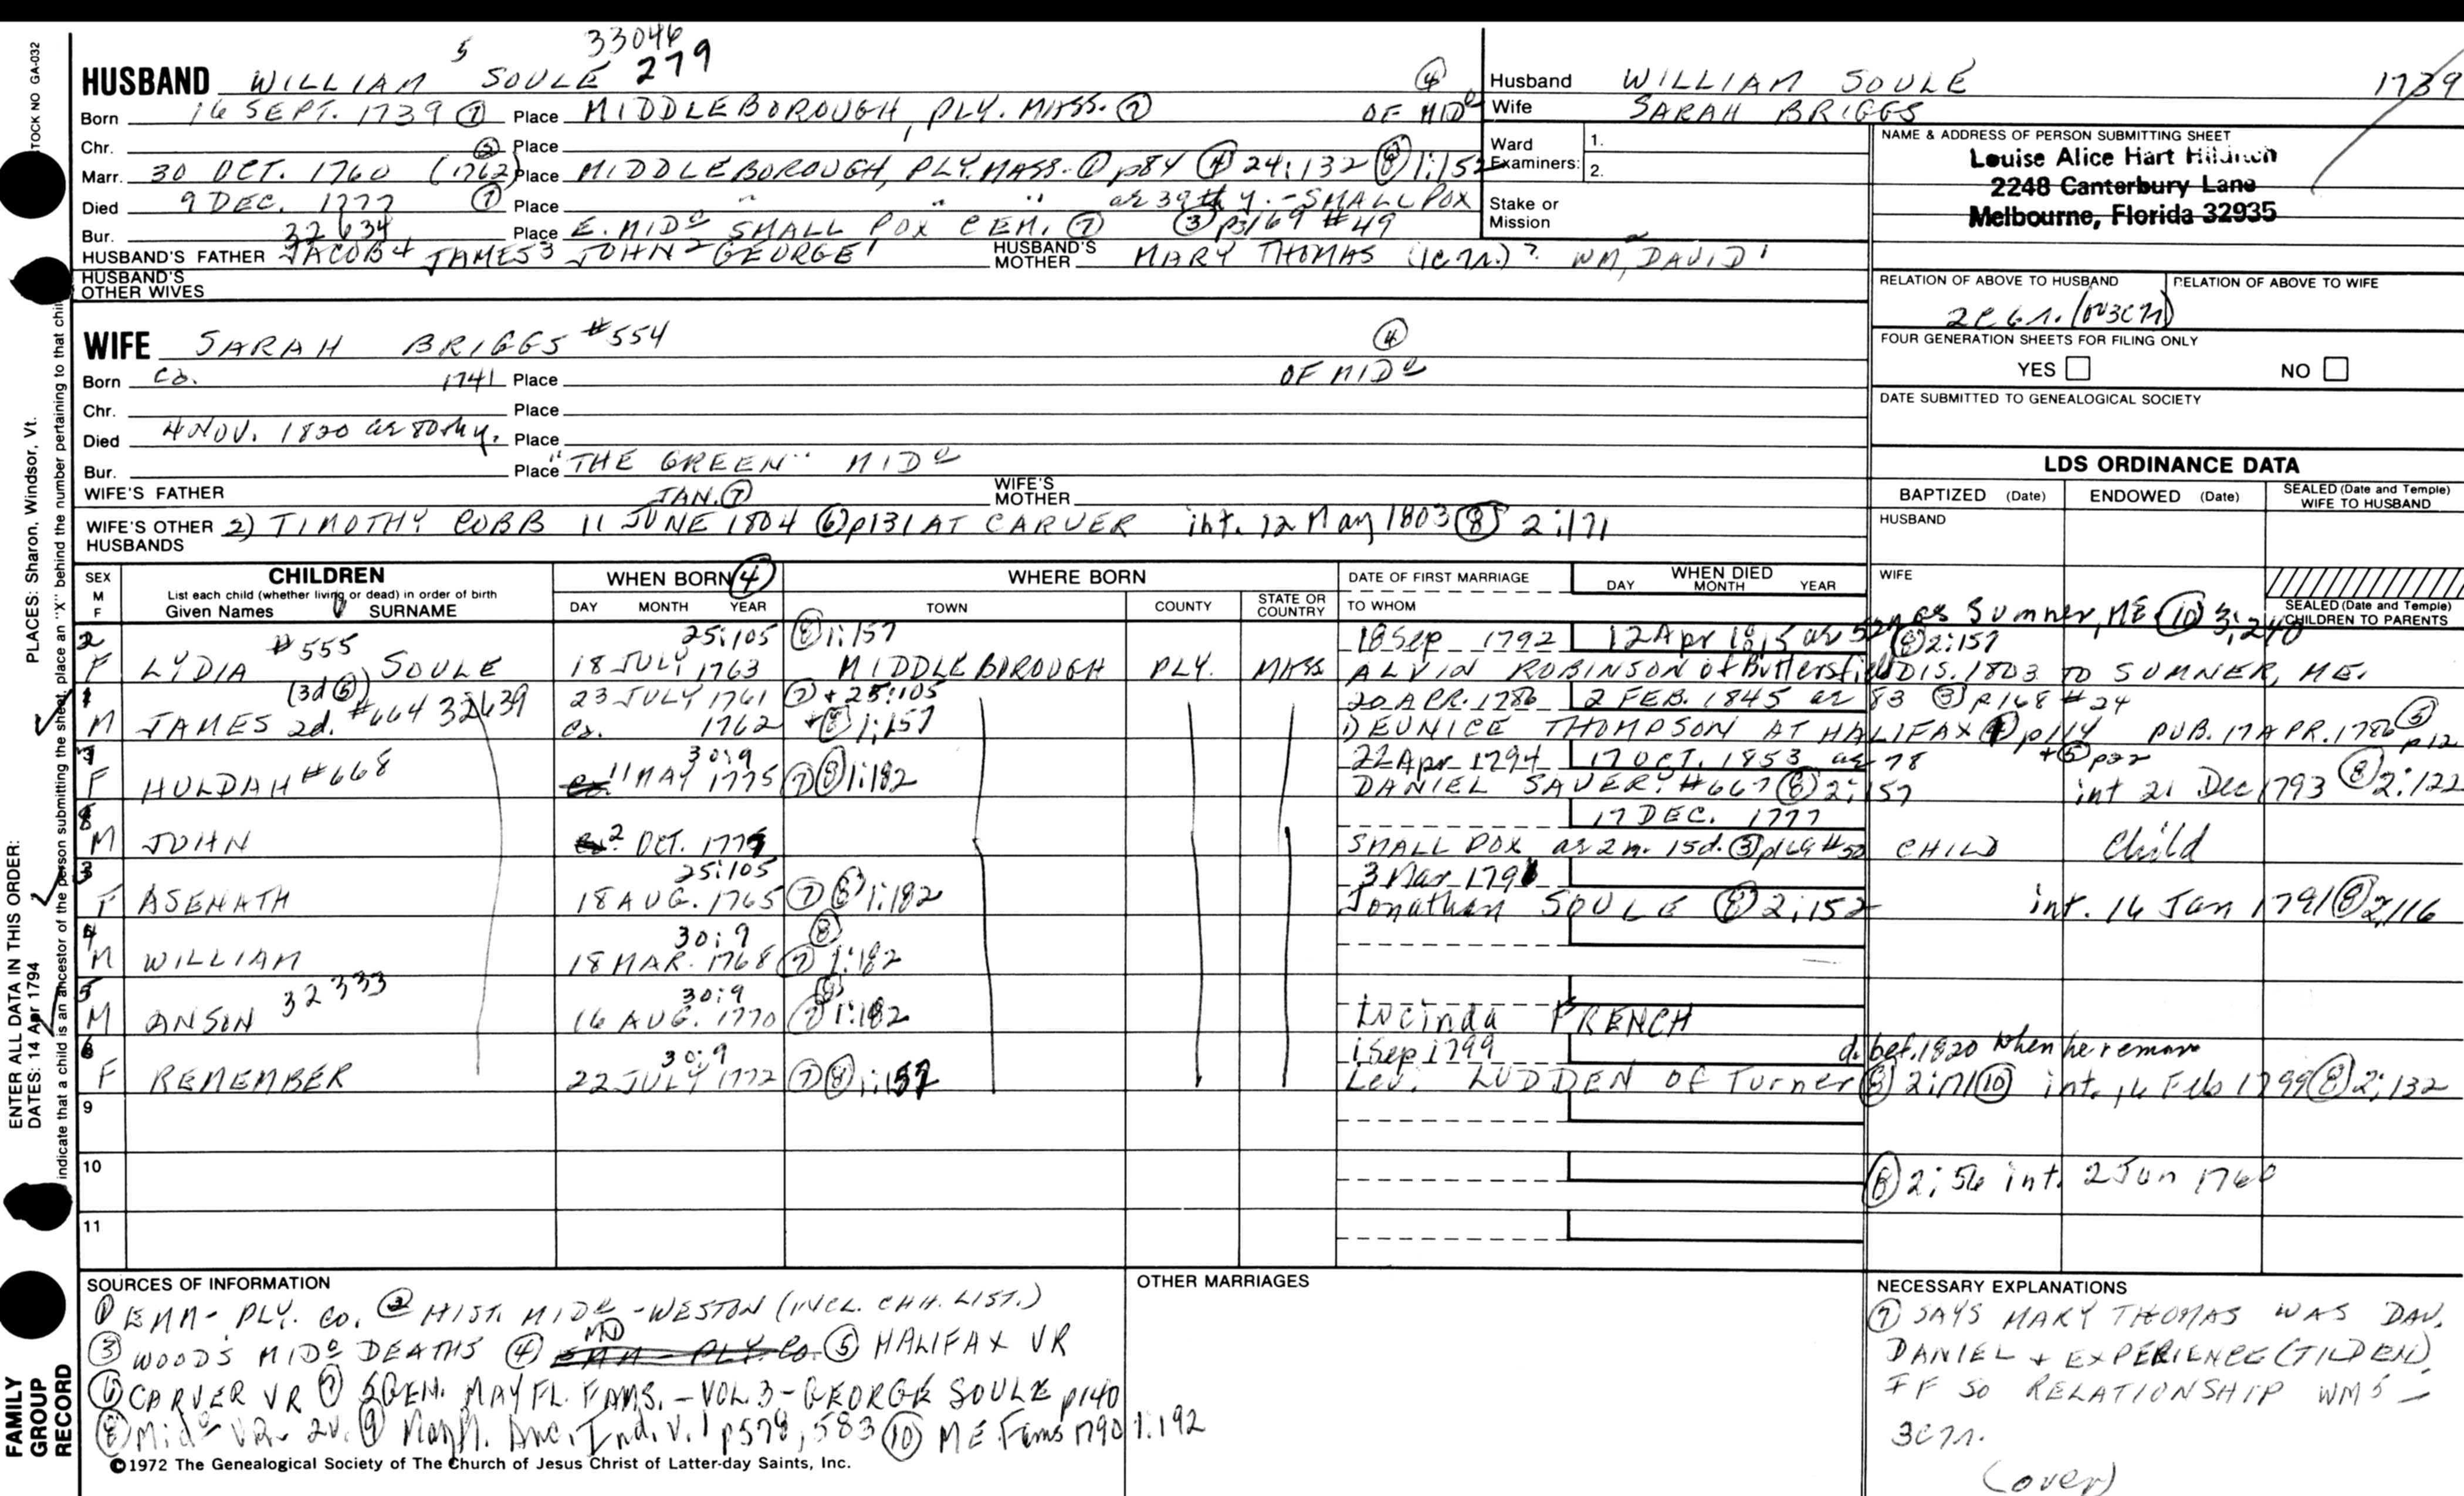 33046
5
HUSBAND WILLIAM SOULE 279 ④
Born 16 SEPT. 1739 ⑦ Place MIDDLEBOROUGH, PLY. MASS. ⑦ OF MIDº
Chr. Place
Marr. 30 OCT. 1760 (1762) ② Place MIDDLEBOROUGH, PLY. MASS. ① p84 ④ 24:132 ⑧ 1:152
Died 9 DEC. 1777 ⑦ Place " " " ae 39th y. - SMALL POX
Bur. 32634 Place E. MIDº SMALL POX CEM. ⑦ ③ p169 #49
HUSBAND'S FATHER JACOB4 JAMES3 JOHN2 GEORGE1 HUSBAND'S MOTHER MARY THOMAS (1c7r.)? WM,2 DAVID1
HUSBAND'S OTHER WIVES
Husband WILLIAM SOULE 1739
Wife SARAH BRIGGS
Ward Examiners: 1.
2.
Stake or Mission
NAME & ADDRESS OF PERSON SUBMITTING SHEET
Louise Alice Hart Hildreth
2248 Canterbury Lane
Melbourne, Florida 32935
RELATION OF ABOVE TO HUSBAND RELATION OF ABOVE TO WIFE
2c6r. (or 3c7r)
FOUR GENERATION SHEETS FOR FILING ONLY
YES NO
DATE SUBMITTED TO GENEALOGICAL SOCIETY
WIFE SARAH BRIGGS #554 ④
Born ca. 1741 Place OF MIDº
Chr. Place
Died 4 NOV. 1820 ae 80th y. Place
Bur. Place "THE GREEN" MIDº
WIFE'S FATHER WIFE'S MOTHER
JAN. ⑦
WIFE'S OTHER HUSBANDS 2) TIMOTHY COBB 11 JUNE 1804 ⑥ p131 AT CARVER int. 12 May 1803 ⑧ 2:171
LDS ORDINANCE DATA
BAPTIZED (Date) ENDOWED (Date) SEALED (Date and Temple) WIFE TO HUSBAND
HUSBAND
WIFE
SEALED (Date and Temple) CHILDREN TO PARENTS
SEX M F CHILDREN List each child (whether living or dead) in order of birth Given Names SURNAME
WHEN BORN ④ DAY MONTH YEAR
WHERE BORN TOWN COUNTY STATE OR COUNTRY
DATE OF FIRST MARRIAGE TO WHOM
WHEN DIED DAY MONTH YEAR
2 #555 25:105 ⑧ 1:157 18 Sep 1792 12 Apr 1815 ae 52y Sumner, ME ⑩ 3:240
F LYDIA SOULE 18 JULY 1763 MIDDLEBOROUGH PLY. MASS ALVIN ROBINSON of Buttersfield ⑧ 2:157 DIS. 1803 TO SUMNER, ME.
1 (3d ⑤) 23 JULY 1761 ⑦ + 25:105 20 APR. 1786 2 FEB. 1845 ae 83 ③ p168 #24
M JAMES 2d. #664 32639 ca. 1762 + ⑧ 1:157 1) EUNICE THOMPSON AT HALIFAX ① p114 PUB. 17 APR. 1786 ⑤ p12
7 30:9 22 Apr 1794 17 OCT. 1853 ae 78 + ⑤ p22
F HULDAH #668 11 MAY 1775 ⑦ ⑧ 1:182 DANIEL SAVERY #667 ⑧ 2:157 int 21 Dec 1793 ⑧ 2:122
8 17 DEC. 1777
M JOHN 2 OCT. 1777 SMALL POX ae 2m. 15d. ③ p169 #50 CHILD Child
3 25:105 3 Mar 1791
F ASENATH 18 AUG. 1765 ⑦ ⑧ 1:182 Jonathan SOULE ⑧ 2:152 int. 16 Jan 1791 ⑧ 2/116
4 30:9 ⑧
M WILLIAM 18 MAR. 1768 ⑦ 1:182
5 30:9 ⑧
M ANSON 32333 16 AUG. 1770 ⑦ 1:182 Lucinda FRENCH
6 30:9 1 Sep 1799 d. bef. 1820 when he remarr
F REMEMBER 22 JULY 1772 ⑦ ⑧ 1:182 Levi LUDDEN of Turner ⑧ 2:171 ⑩ int. 16 Feb 1799 ⑧ 2:132
9
10 ⑧ 2:56 int. 2 Jun 1760
11
SOURCES OF INFORMATION
① EMM - PLY. CO. ② HIST. MIDº - WESTON (INCL. CHH. LIST.)
③ WOOD'S MIDº DEATHS ④ MD EMM - PLY. Co. ⑤ HALIFAX VR
⑥ CARVER VR ⑦ 5 GEN. MAYFL. FAMS. - VOL 3 - GEORGE SOULE p140
⑧ Midº VR - 2v. ⑨ Mayfl. Anc. Ind. v. 1 p578, 583 ⑩ ME Fams 1790 1:192
©1972 The Genealogical Society of The Church of Jesus Christ of Latter-day Saints, Inc.
OTHER MARRIAGES
NECESSARY EXPLANATIONS
⑦ SAYS MARY THOMAS WAS DAU.
DANIEL + EXPERIENCE (TILDEN)
IF SO RELATIONSHIP WM5 -
3c7r.
(over)
STOCK NO GA-032
PLACES: Sharon, Windsor, Vt.
ENTER ALL DATA IN THIS ORDER:
DATES: 14 Apr 1794
indicate that a child is an ancestor of the person submitting the sheet, place an "X" behind the number pertaining to that chil
FAMILY GROUP RECORD